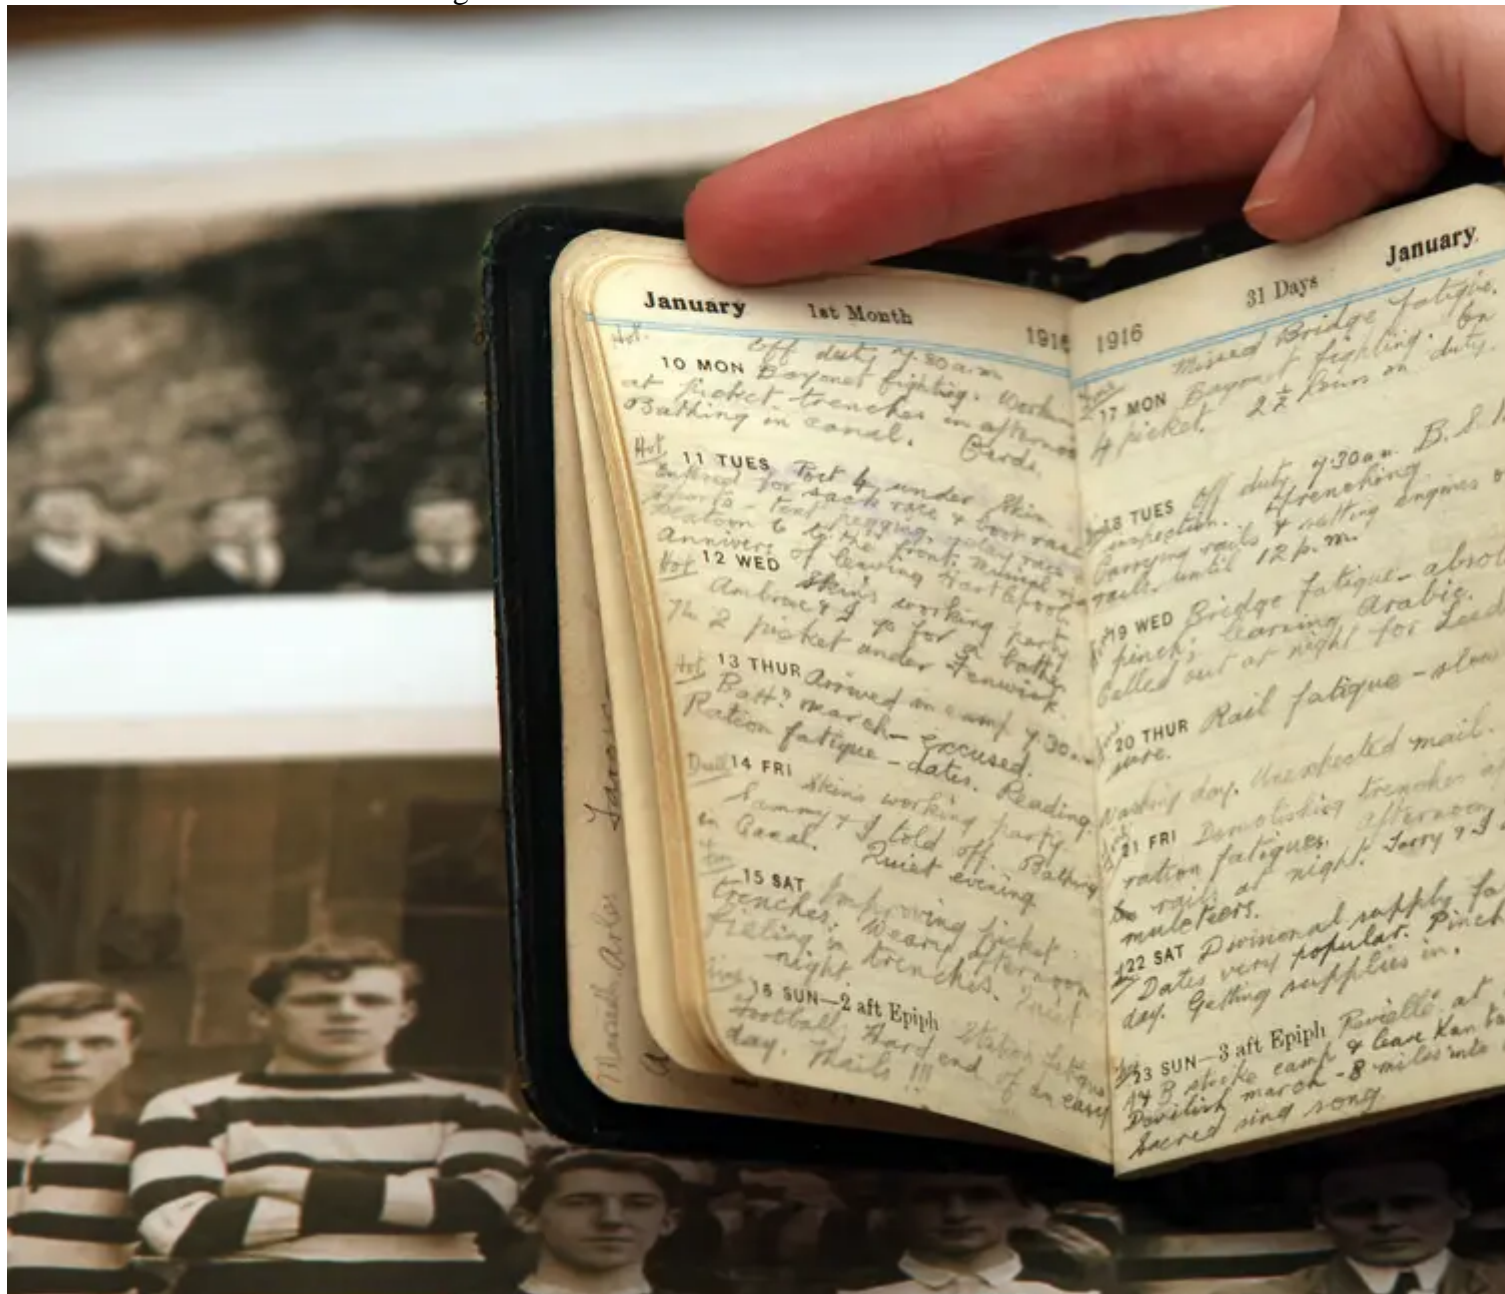 January 1st Month 1916
Hot. Off duty 7.30 a.m
10 MON Bayonet fighting. Work
at picket trenches in afternoon
Bathing in canal. Cards.
Hot 11 TUES Post 4 under Skin
Entered for sack race & boot race
sports - tent pegging, relay race
Platoon 6 to the front.
Annivers of leaving Hartlepool
Hot 12 WED Skin's working party
Ambrose & I go for a bathe
No 2 picket under Fenwick.
Hot 13 THUR Arrived in camp 7.30 a.m
Batt? march - excused.
Ration fatigue - dates. Reading.
Dull 14 FRI Skin's working party.
Sammy & I told off. Bathing
in Canal. Quiet evening
15 SAT Improving picket
trenches. Weary afternoon
filling in trenches. Quiet
night.
16 SUN—2 aft Epiph Station fatigue
Football. Hard end of an easy
day. Mails !!!
January
31 Days
1916
Missed Bridge fatigue.
17 MON Bayonet fighting. On
4 picket. 2½ hours on duty.
18 TUES Off duty 7.30 a.m. B.S.
inspection. Trenching.
Carrying rails & setting engines
rails until 12 p.m.
19 WED Bridge fatigue - absol
pinch; learning Arabic.
Called out at night for
20 THUR Rail fatigue - slow
sure.
Washing day. Unexpected mail.
21 FRI Demolishing trenches
ration fatigues, afternoon
rails at night. Torry & I
muleteers.
22 SAT Divisional supply fa
Dates very popular. Pinch
day. Getting supplies in.
23 SUN—3 aft Epiph Reveille at
14 B strike camp & leave Kan
Devilish march - 8 miles into
Sacred sing song.